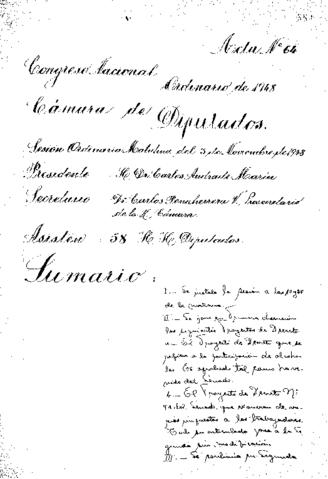 Acta Nº 64
Congreso Nacional
Ordinario de 1948
Cámara de
Diputados.
Sesión Ordinaria Matutina del 3 de Noviembre de 1948
Presidente : H. Dr. Carlos Andrade Marín
Secretario : Dr. Carlos V., Prosecretario
de la H. Cámara.
Asisten : 58 H. H. Diputados.
Sumario :
I.- Se instala la sesión a las
de la mañana.-
II.- Se pone en primera discusión
los siguientes Proyectos de Decreto
a.- El Proyecto de Decreto que se
refiere a la participación de alcoho-
les
del Senado.
b.- El Proyecto de Decreto Nº
Senado, que exonera de
impuestos a los trabajadores.
pasa a la se-
gunda sin modificación.
III.- Se en segunda